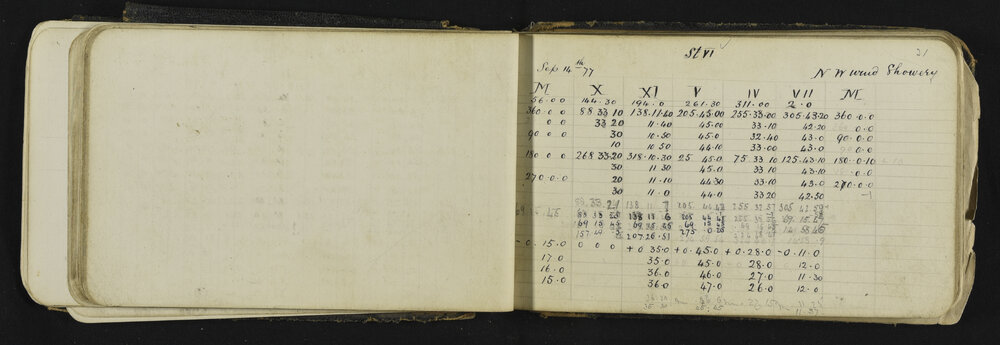 St VI 31
Sep 14th 77 N W wind Showery
M X XI V IV VII M
56.0.0 144.30 194.0 261.30 311.00 2.0
360 0.0 88 33 10 138.11.40 205.45.00 255.33.00 305.43.20 360.0.0
0 0 33 20 11.40 45.00 33.10 42.20 0.0
90 0.0 30 10.50 45.0 32.40 43.0 90.0.0
10 10 50 44.10 33.00 43.0
180 0 0 268 33.20 318.10.30 25 45.0 75 33 10 125.43.10 180.0.10
30 11 30 45.0 33.10 43.10
270 0.0 20 11.10 44.30 33.10 43.0 270.0.0
30 11.0 44.0 33.20 42.50
83 33 21 138 11 205 255 32 57 305 42 59
138 11 6 205 69.15.
69 13
157 207.26.51 275 0
-0.15.0 0 0 0 +0 35.0 +0.45.0 +0.28.0 -0.11.0
17.0 35.0 45.0 28.0 12.0
16.0 36.0 46.0 27.0 11.30
15.0 36.0 47.0 26.0 12.0